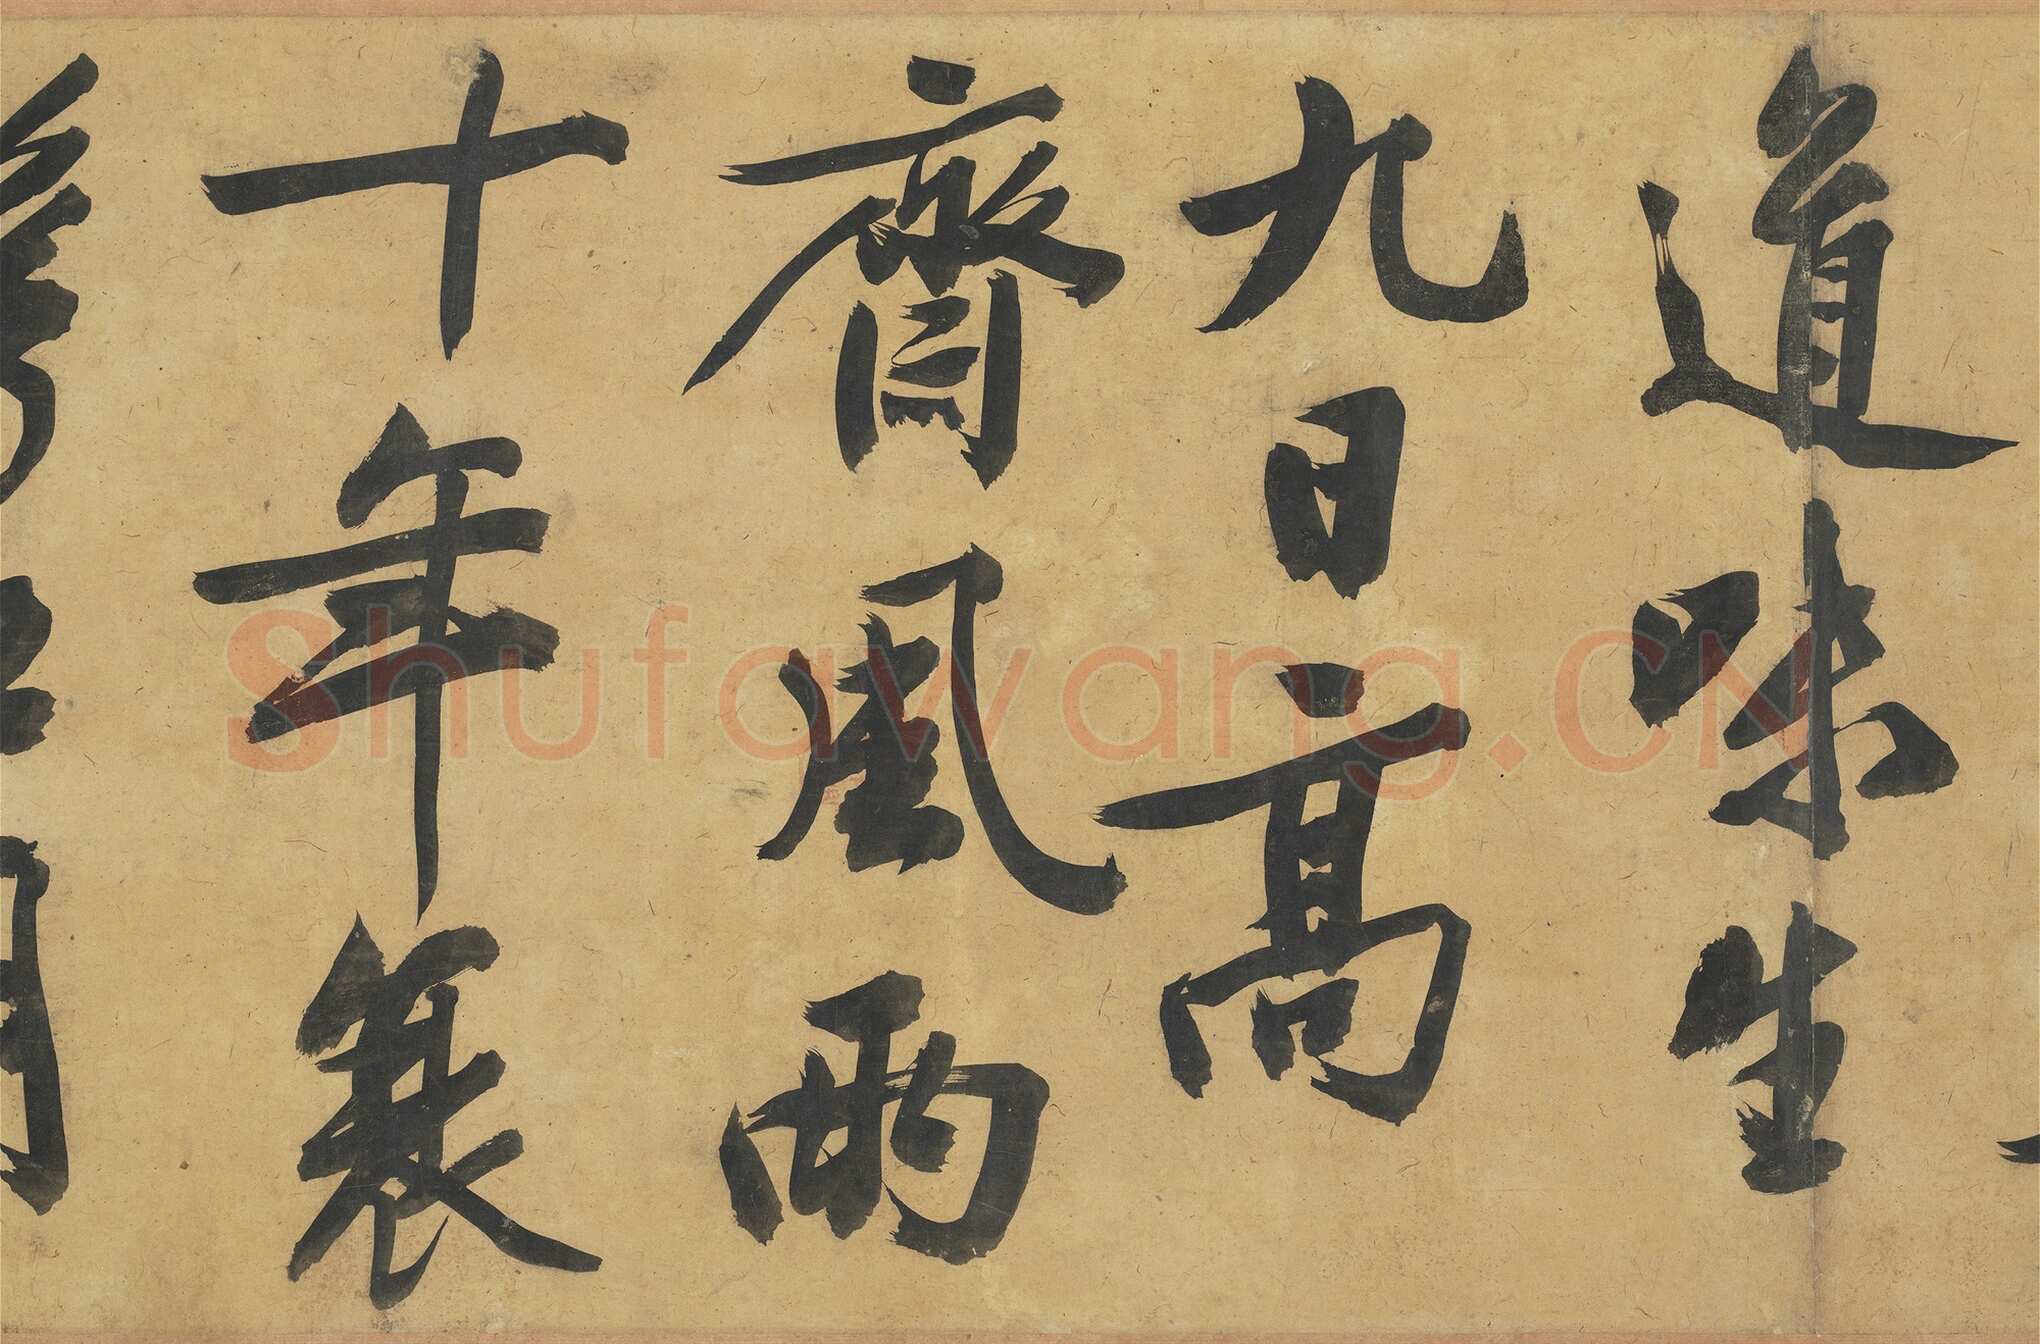 道味生
九日高
齋風雨
十年
Shufawang.CN